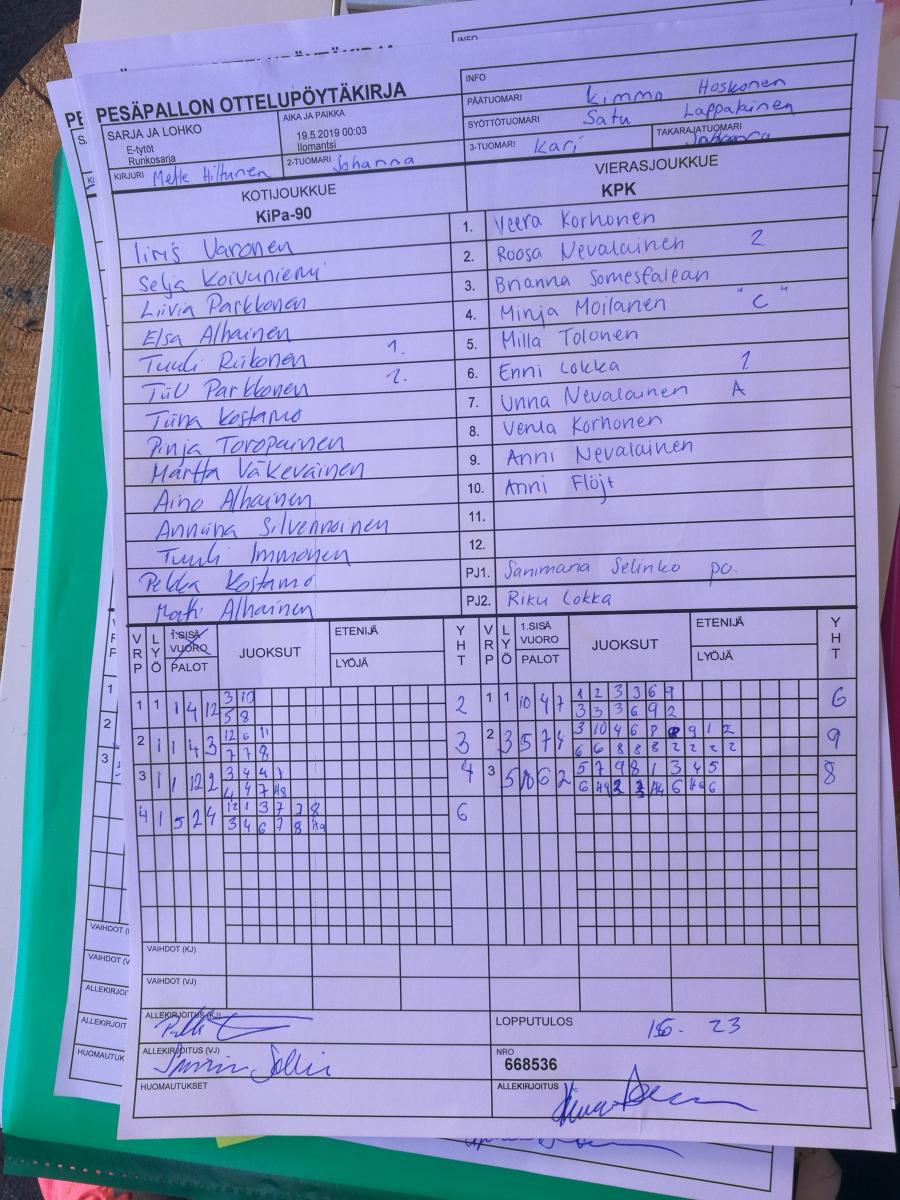 PESÄPALLON OTTELUPÖYTÄKIRJA
INFO
SARJA JA LOHKO
E-tytöt
Runkosarja
AIKA JA PAIKKA
19.5.2019 00:03
Ilomantsi
PÄÄTUOMARI Kimmo Hoskonen
SYÖTTÖTUOMARI Satu Lappalainen
KIRJURI Mette Hiltunen
2-TUOMARI Johanna
3-TUOMARI Kari
TAKARAJATUOMARI
KOTIJOUKKUE
KiPa-90
VIERASJOUKKUE
KPK
Iiris Varonen
1. Veera Korhonen
Selja Koivuniemi
2. Roosa Nevalainen 2
Liivia Parkkonen
3. Brianna Somesfalean
Elsa Alhainen
4. Minja Moilanen "C"
Tuuli Riikonen 1.
5. Milla Tolonen
Tiili Parkkonen 2.
6. Enni Lokka 1
Tiina Kostamo
7. Unna Nevalainen A
Pinja Toropainen
8. Venla Korhonen
Martta Väkeväinen
9. Anni Nevalainen
Aino Alhainen
10. Anni Flöjt
Anniina Silvennoinen
11.
Tuuli Immonen
12.
Pekka Kostamo
PJ1. Sanimaria Selinko po.
Matti Alhainen
PJ2. Riku Lokka
VRP LYÖ 1.SISÄ VUORO PALOT JUOKSUT ETENIJÄ LYÖJÄ YHT VRP LYÖ 1.SISÄ VUORO PALOT JUOKSUT ETENIJÄ LYÖJÄ YHT
1 1 1 4 12 3 10 2 1 1 10 4 7 1 2 3 3 6 9 6
5 8 3 3 3 6 9 2
2 1 1 4 3 12 6 11 3 2 3 5 7 8 3 10 4 6 8 9 1 2 9
7 7 8 6 6 8 8 8 2 2 2 2
3 1 1 12 2 3 4 4 7 4 3 5 10 6 2 5 7 9 8 1 3 4 5 8
4 4 7
4 1 5 2 4 12 1 3 7 7 8 6
3 4 6 7 8
VAIHDOT (KJ)
VAIHDOT (VJ)
ALLEKIRJOITUS (KJ)
LOPPUTULOS 15 - 23
ALLEKIRJOITUS (VJ)
NRO
668536
HUOMAUTUKSET
ALLEKIRJOITUS